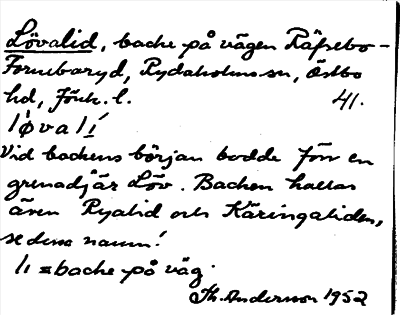 Lövalid, backe på vägen Räfsebo-
Fornebaryd, Rydaholms sn, Östbo
hd, Jönk. l. 41.
løvalí
Vid backens början bodde förr en
grenadjär Löv. Backen kallas
även Ryalid och Käringaliden,
se dess namn!
li = backe på väg.
Th. Andersson 1952